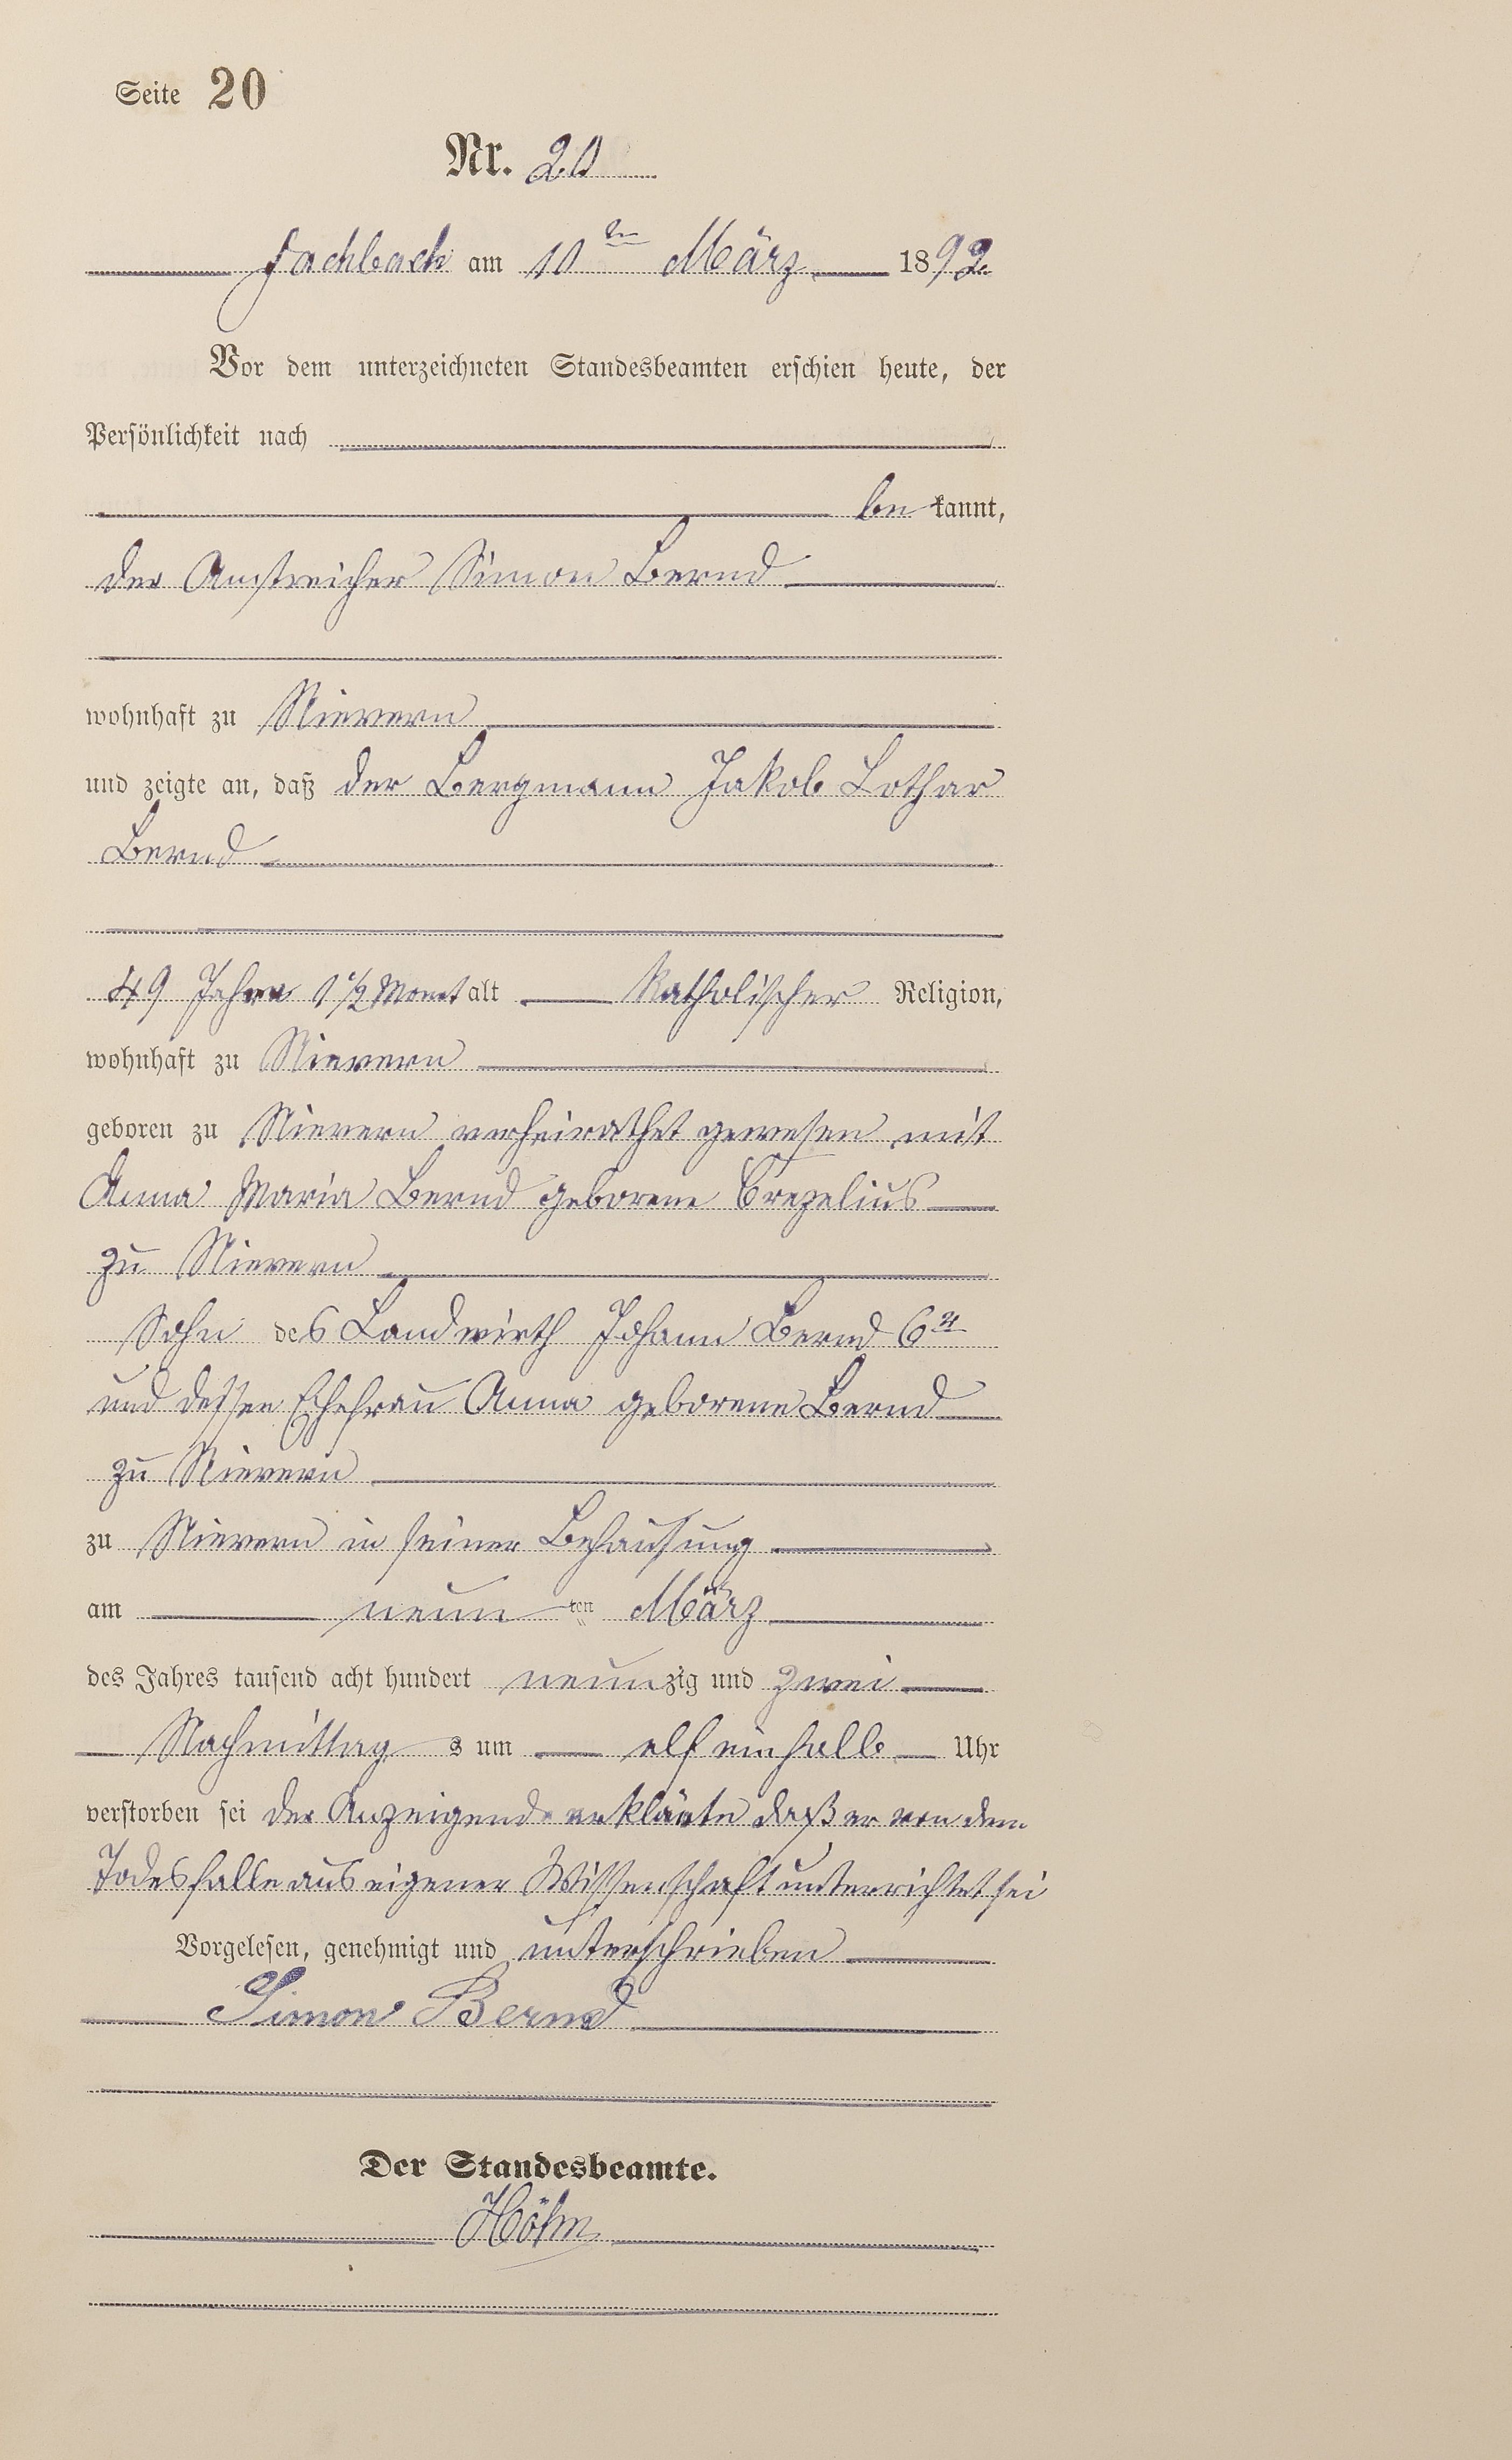 Seite 20
Nr. 20
Fachbach am 10ten März 1892
Vor dem unterzeichneten Standesbeamten erschien heute, der
Persönlichkeit nach
be kannt,
der Anstreicher Simon Bernd
wohnhaft zu Nievern
und zeigte an, daß der Bergmann Jakob Lothar
Bernd
49 Jahre 1 1/2 Monat alt katholischer Religion,
wohnhaft zu Nievern
geboren zu Nievern verheirathet gewesen mit
Anna Maria Bernd geborene Crezelius
zu Nievern
Sohn des Landwirth Johann Bernd 6r
und dessen Ehefrau Anna geborene Bernd
zu Nievern
zu Nievern in seiner Behausung
am neun ten März
des Jahres tausend acht hundert neunzig und zwei
Nachmittag s um elf einhalb Uhr
verstorben sei der Anzeigende erklärte daß er von dem
Todesfalle aus eigener Wissenschaft unterrichtet sei
Vorgelesen, genehmigt und unterschrieben
Simon Bernd
Der Standesbeamte.
Höhn